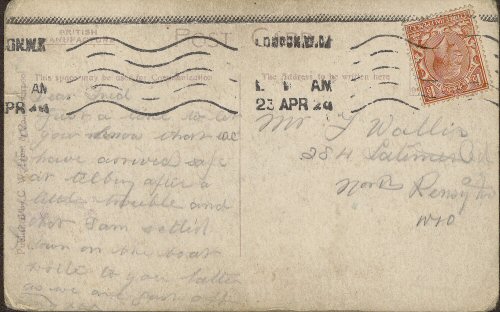 BRITISH
MANUFACTURE
POST C
LONDON.W.
AM
APR 24
LONDON.W.
AM
23 APR 24
This space may be used for Communication
The Address to be written here
Just a line to let
you know that we
have arrived safe
at Tilbury after a
little trouble and
that I am settled
down on the boat
write to you latter
as we are just off
Mr F Wallis
284 Latimer Rd
North Kensington
W10